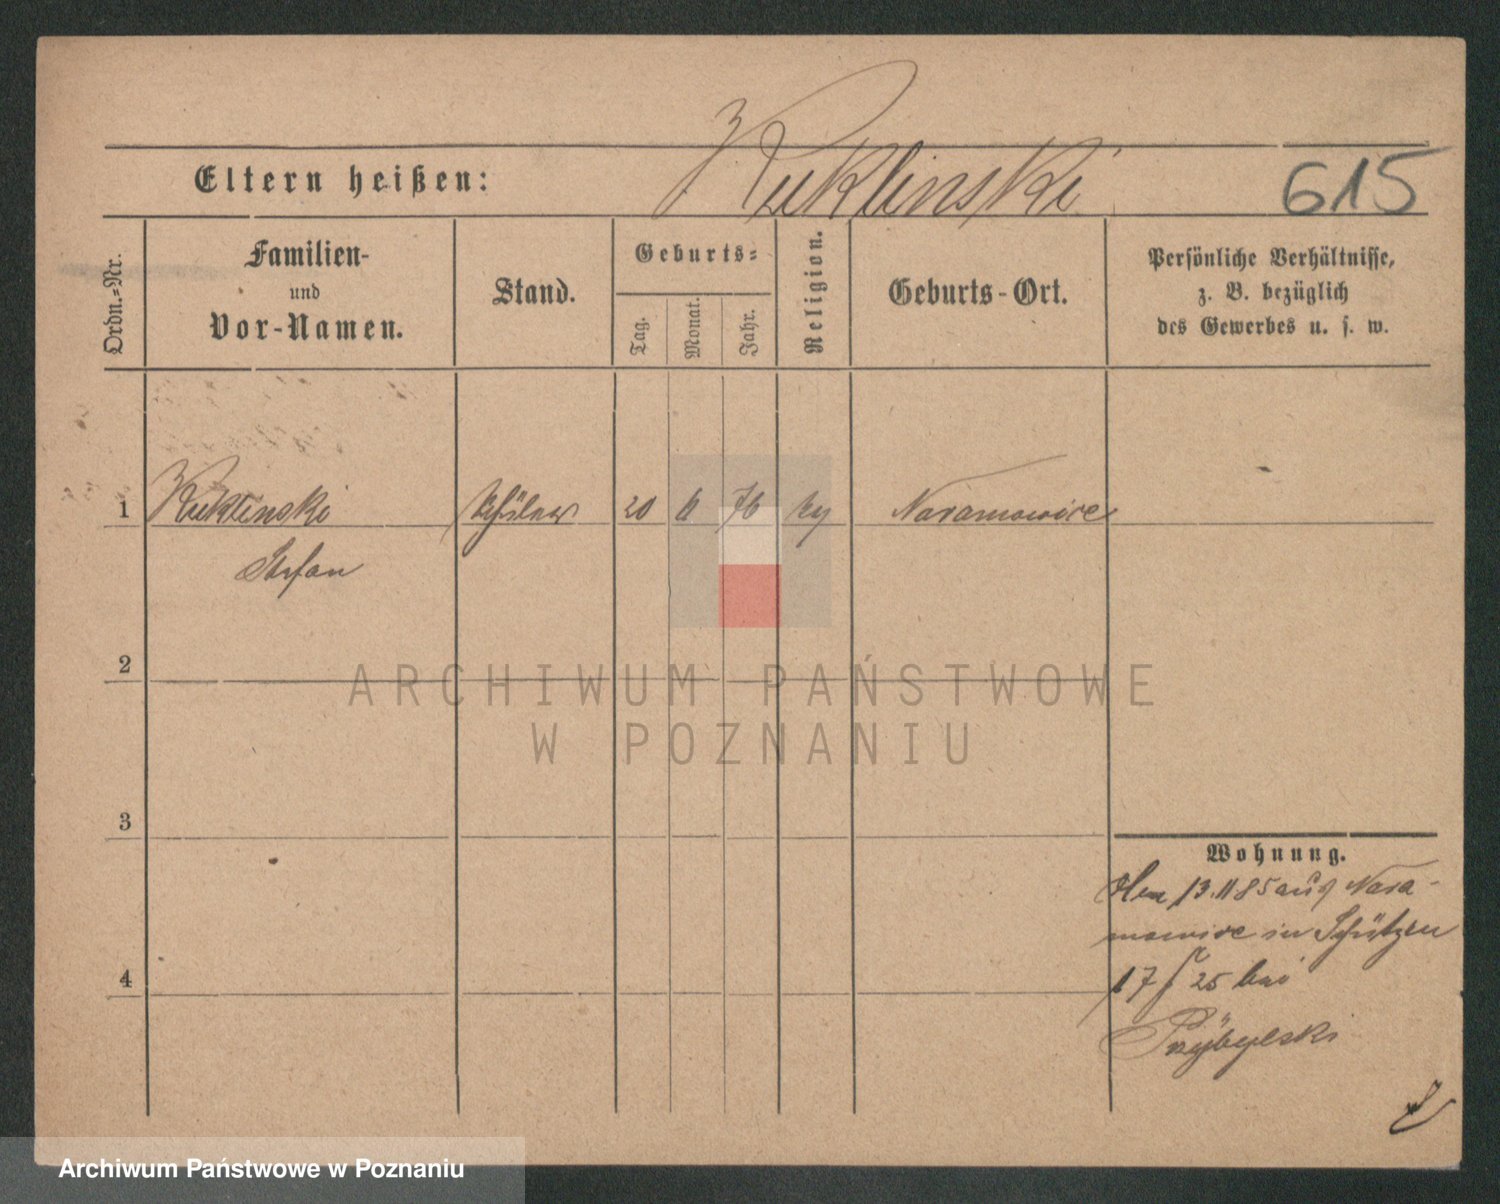 Kuklinski
Eltern heißen:
615
Ordn.-Nr.
Familien-
und
Vor-Namen.
Stand.
Geburts-
Tag.
Monat.
Jahr.
Religion.
Geburts-Ort.
Persönliche Verhältnisse,
z. B. bezüglich
des Gewerbes u. s. w.
1 Kuklinski Schüler 20 76 Naramowice
Stefan
2
ARCHIWUM PAŃSTWOWE
W POZNANIU
3
Wohnung.
13.11 85 aus Nara-
mowice in Schützen
25 bei
4
Przybylski
Archiwum Państwowe w Poznaniu